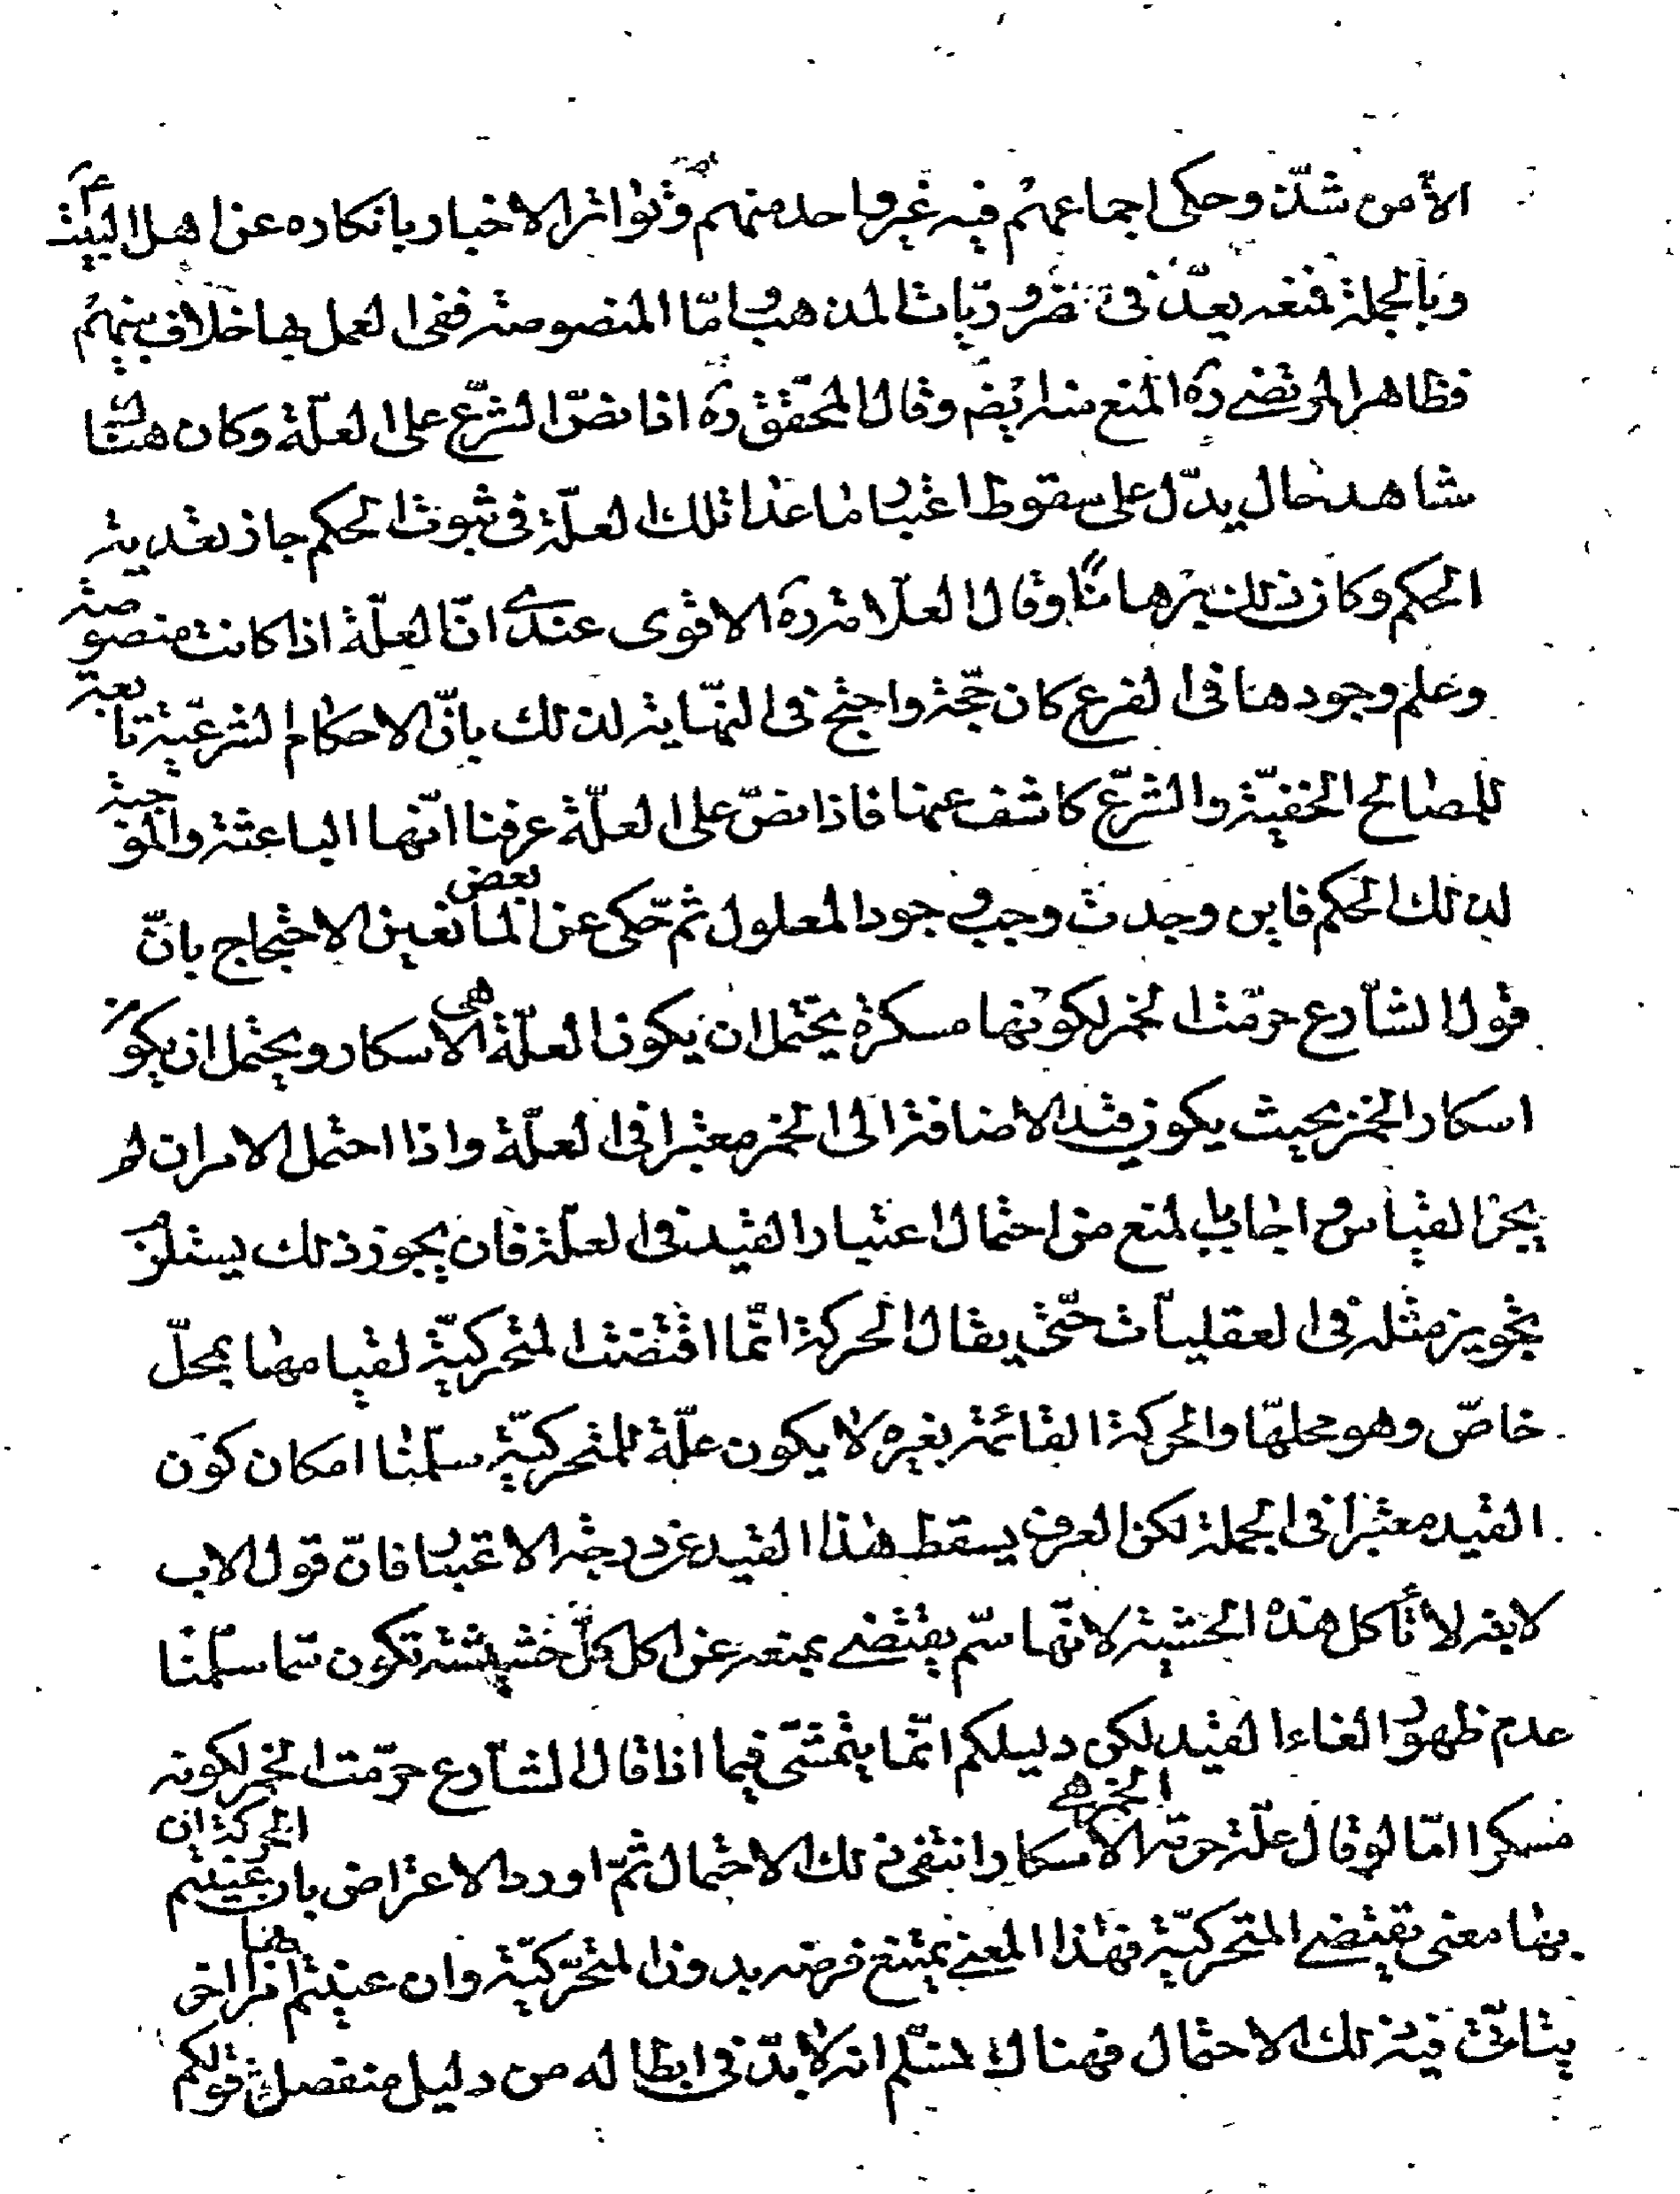 الا من شذّ وحكى اجماعهم فيه غير واحد منهم وتواتر الاخبار بانكاره عن اهل البيت ع
وبالجملة فمنعه يعدّ فى ضروريات المذهب وامّا المنصوصة ففى العمل بها خلاف بينهم
فظاهر المرتضى ره المنع منه ايضم وقال المحقّق ره اذا نصّ الشرّع على العلّة وكان هناك
شاهد حال يدّل على سقوط اعتبار ما عدا تلك العلّة فى ثبوت الحكم جاز تعدية
الحكم وكان ذلك برهانًا وقال العلّامة ره الاقوى عندى انّ العلّة اذا كانت منصوصة
وعلم وجودها فى الفرع كان حجّة واحتج فى النهّاية لذلك بانّ الاحكام الشرعيّة تابعة
للمصالح الخفيّة والشرّع كاشف عنها فاذا نصّ على العلّة عرفنا انّها الباعثة والموجبة
لذلك الحكم فاين وجدت وجب وجود المعلول ثم حكى عن بعض المانعين الاحتجاج بانّ
قول الشارع حرّمت الخمر لكونها مسكرة يحتمل ان يكون العلّة هى الاسكار ويحتمل ان يكون
اسكار الخمر بحيث يكون قيد الاضافة الى الخمر معتبرا فى العلّة واذا احتمل الامران لم
يجز القياس واجاب بالمنع من احتمال اعتبار القيد فى العلّة فان يجوز ذلك يستلزم
تجويز مثله فى العقليات حتّى يقال الحركة انّما اقتضت المتحركيّة لقيامها بمحلّ
خاصّ وهو محلهّا والحركة القائمة بغيره لا يكون علّة للمتحركيّة سلّمنا امكان كون
القيد معتبرا فى الجملة لكن العرف يسقط هذا القيد عن درجة الاعتبار فانّ قول الاب
لابنه لا تأكل هذه الحشيشة لانّها سّم يقتضى بمنعه عن اكل كلّ حشيشة تكون سّما سلّمنا
عدم ظهور الغاء القيد لكن دليلكم انّما يتمشّى فيما اذا قال الشارع حرّمت الخمر لكونه
مسكرا امّا لو قال علّة حرمة الخمر هى الاسكار انتفى ذلك الاحتمال ثمّ اورد الاعتراض بان الحركة ان عنيتم
بها معنى يقتضى المتحركيّة فهذا المعنى يمتنع فرضه بدون المتحرّكيّة وان عنيتم بها امرا اخر
يتاتّى فيه ذلك الاحتمال فهناك نسلّم انه لا بدّ فى ابطاله من دليل منفصل قولكم